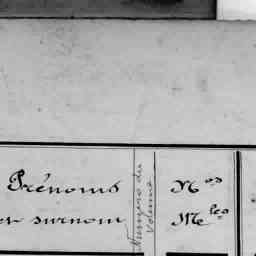 Prénoms
et surnom
Numéro du
Volume
Nos
Mles